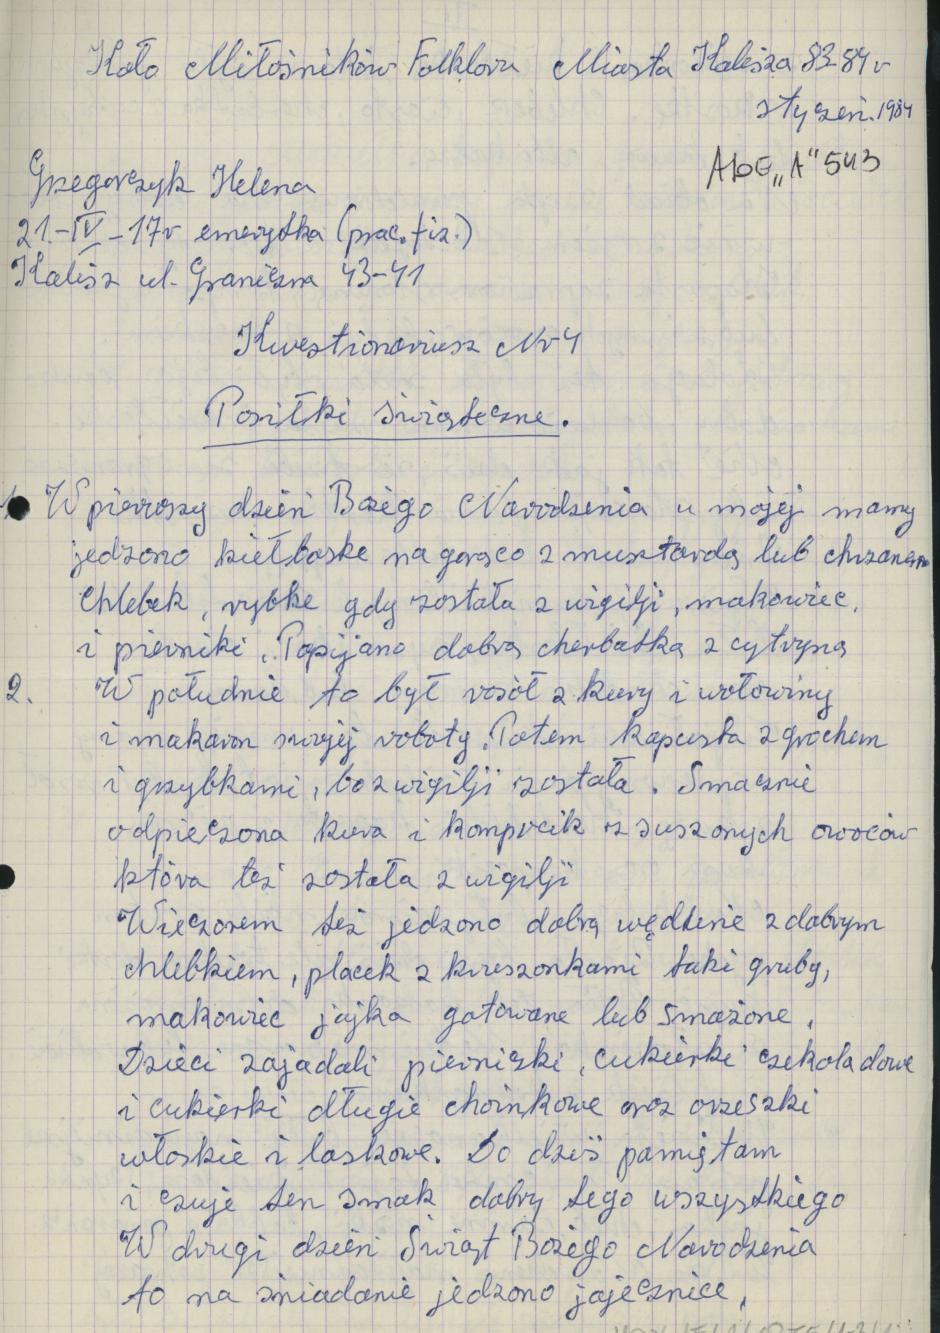 Koło Miłośników Folkloru Miasta Kalisza 83-84r
styczeń. 1984
AbE „A" 543
Grzegorczyk Helena
21-IV-17r emerytka (prac. fiz.)
Kalisz ul. Graniczna 43-41
Kwestionariusz Nr 4
Posiłki świąteczne.
1. W pierwszy dzień Bożego Narodzenia u mojej mamy
jedzono kiełbaske na gorąco z musztardą lub chrzanem
Chlebek, rybke gdy została z wigilji, makowiec,
i pierniki. Popijano dobrą cherbatką z cytryną
2. W południe to był rosół z kury i wołowiny
i makaron swojej roboty. Potem kapusta z grochem
i grzybkami, bo z wigilji została. Smacznie
odpieczona kura i kompocik z suszonych owoców
która też została z wigilji
Wieczorem też jedzono dobrą wędline z dobrym
chlebkiem, placek z kruszonkami taki gruby,
makowiec jajka gotowane lub smażone,
Dzieci zajadali pierniczki, cukierki czekoladowe
i cukierki długie choinkowe oraz orzeszki
włoskie i laskowe. Do dziś pamiętam
i czuje ten smak dobry tego wszystkiego
W drugi dzień Świąt Bożego Narodzenia
to na śniadanie jedzono jajecznice,